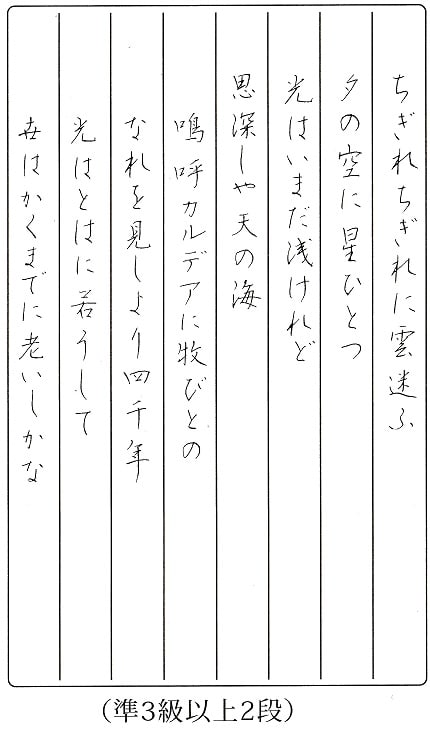 ちぎれちぎれに雲迷ふ
夕の空に星ひとつ
光はいまだ浅けれど
思深しや天の海
嗚呼カルデアに牧びとの
なれを見しより四千年
光はとはに若うして
世はかくまでに老いしかな
（準3級以上2段）